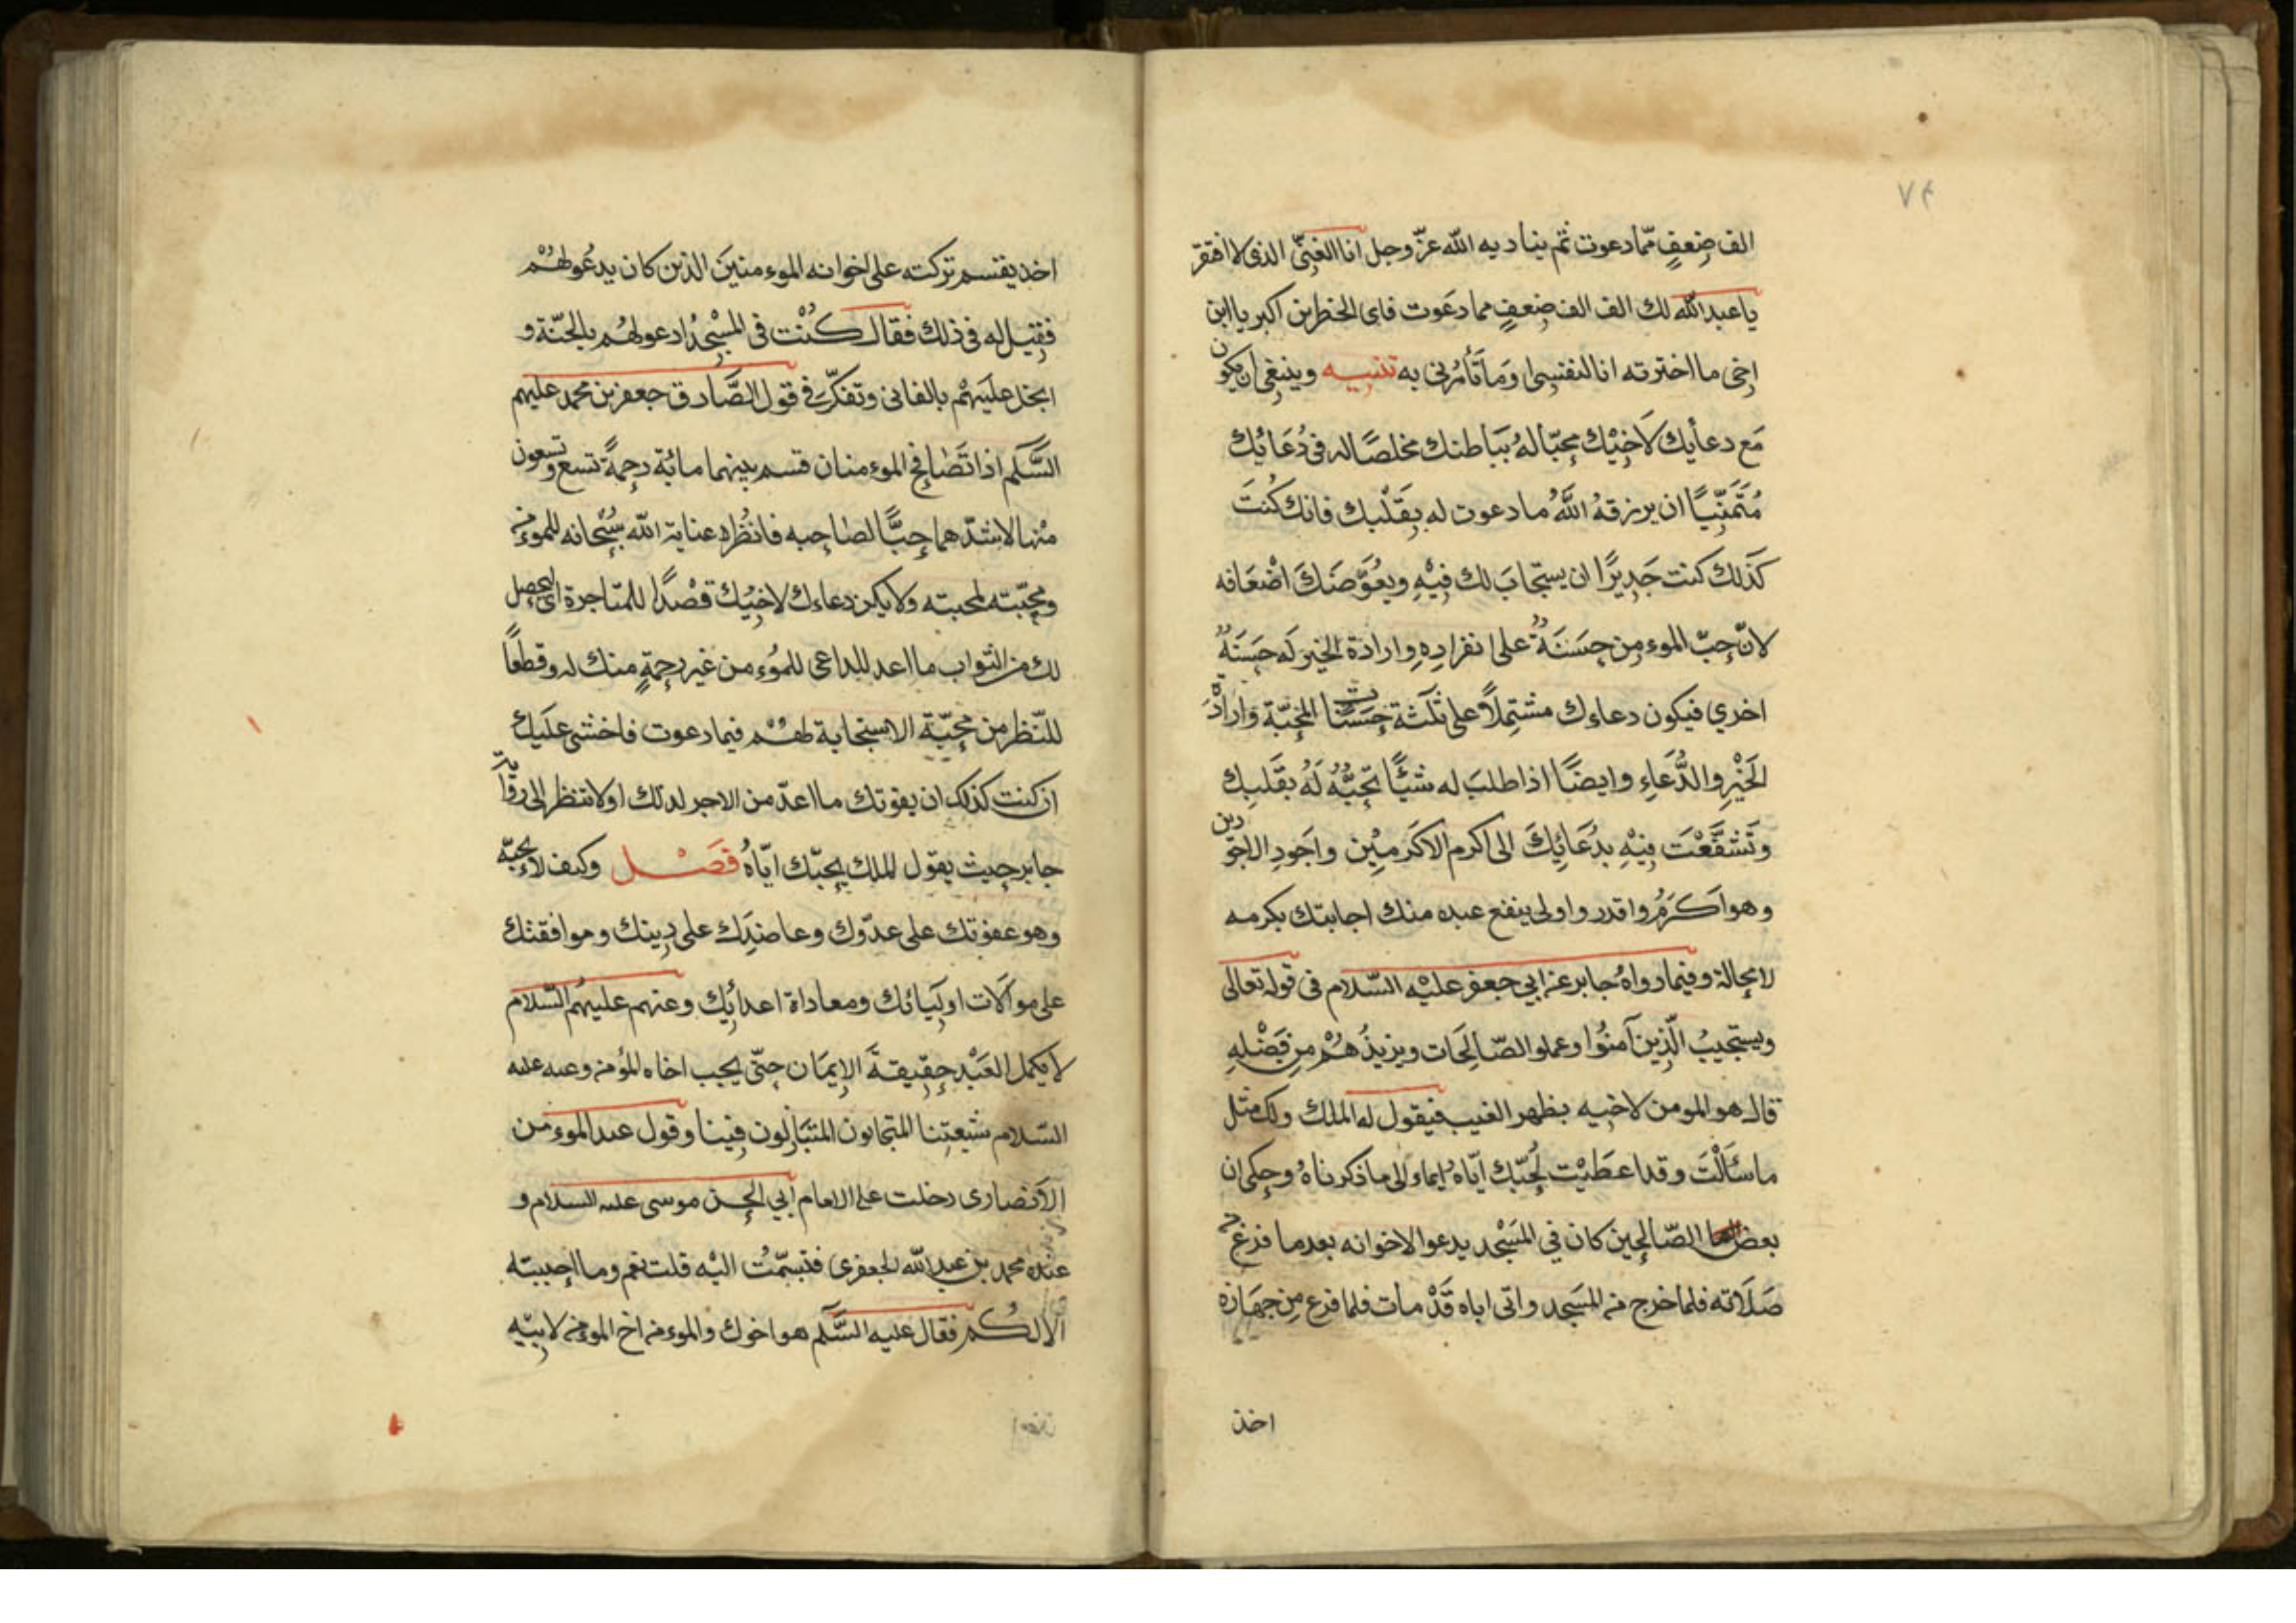 ٧٤
الف ضِعفٍ ممّا دعوت ثم يناديه الله عزّ وجل انا الغنىّ الذى لا افتقر
يا عبد الله لك الف الف ضِعفٍ مما دعَوت فاى الخطرين اكبر يا ابن
اخى ما اخترته انا لنفسى او مَا تأمُرنى به تنبيه وينبغى ان يكون
مَع دعأيك لاَخِيْك محِبّا لهُ بِبَاطنك مخلصًا له فى دُعَائك
مُتَمَنِّيًا ان يرزقهُ اللهُ ما دعوت له بِقَلْبك فانك كُنتَ
كَذَلك كنت جَدِيرًا ان يستجابَ لك فِيْهِ ويعُوّضَكَ اضْعَافه
لانّ حِبّ الموءمِن حِسَنَةٌ على انفرادِهِ وارادة الخير لَه حِسَنَةٌ
اخري فيكون دعاءك مشتمِلاً على ثلثة حِسَنات المحِبّة وارادَة
الخَيْرِ والدُّعَاءِ وايضًا اذا طلبَ له شئيًا تحِبُّهُ لَهُ بقَلبِك
وتَشفَّعْتَ فِيْهِ بدُعَائِكَ الى اكرم الاكرمِيْن واجَودِ الاجَودين
وهو اكرَمُ واقدر واولى ينفع عبده منك اجابتك بكرمه
لا محِالة وفيما رواهُ جابر عن ابي جعفر عليْه السّلام فى قوله تعالى
ويستجيبُ الّذِين آمنُوا وعملو الصّالِحَات ويزيدُهُمْ مِن فَضْلِهِ
قال هو المومن لاخيه بظهر الغيب فيقول له الملك ولك مثل
ما سَاَلْتَ وقد اعطَيْت لحُبّك ايّاه ايماء الى ما ذكرناهُ وحِكى ان
بعض الصّالحِين كان في المَسْجد يدعوا لاخوانه بعد ما فرغ من
صَلَاته فلما خرج من المسَجد واتى اباه قَدْ مات فلما فرغ مِن جهَازه
اخذ
اخذ يقتسم تركته على اخوانه الموءمنينَ الذين كان يدعُو لهُمْ
فقِيل له فى ذلك فقال كُنْت فى المسْجِد ادعو لهُم بالجنّة و
ابخل عليَهمْ بالفانى وتفكّر في قول الصَّادق جعفر بن محمد عليهم
السَّلم اذا تَصَافح الموءمنان قسم بينهما مائة رحِمةً تسع وتسعون
مِنْها لاشدّهما حِبًّا لصاحِبه فانظُر الى عناية الله سُبْحانه للموءمن
ومحِبّته لمحبته ولا يكن دعاءك لاخيْك قصْدًا للمتاجرة اى لتحصل
لك من الثواب ما اعد للداعى للمُوءمن غير رحِمةٍ منك له وقطعًا
للنّظر من محِبّة الاستجابة لهُمْ فيما دعوت فاخشى علَيك
ان كنت كذلك ان يفوتك ما اعدّ من الاجر لدلك اولا تنظر الى رواية
جابر حِيث يقول الملك بحِبّك ايّاهُ فَصْل وكيف لا يحِبّه
وهو عفوتك على عدّوك وعاضدِك على دِينك وموافقتك
على موالَات اولَيائك ومعاداة اعدائِك وعنهم عليهُم السّلام
لا يكمل العَبْد حِقِيقةَ الاِيمَان حِتّى يحِب اخاه المؤمن وعنه عليه
السّلام شيعتِنا المتحابون المتبَاذِلون فِينا وقول عبد الموءمن
الاَنصارى دخلت على الامام ابي الحِسن موسى عليه السلام و
عنده محمد بن عبد الله الجعفرى فتبسّمْتُ اليْه قلت نعم وما احِببته
الا لكُم فقال عليه السَّلم هو اخوك والموءمن اخ الموءمن لابِيّه